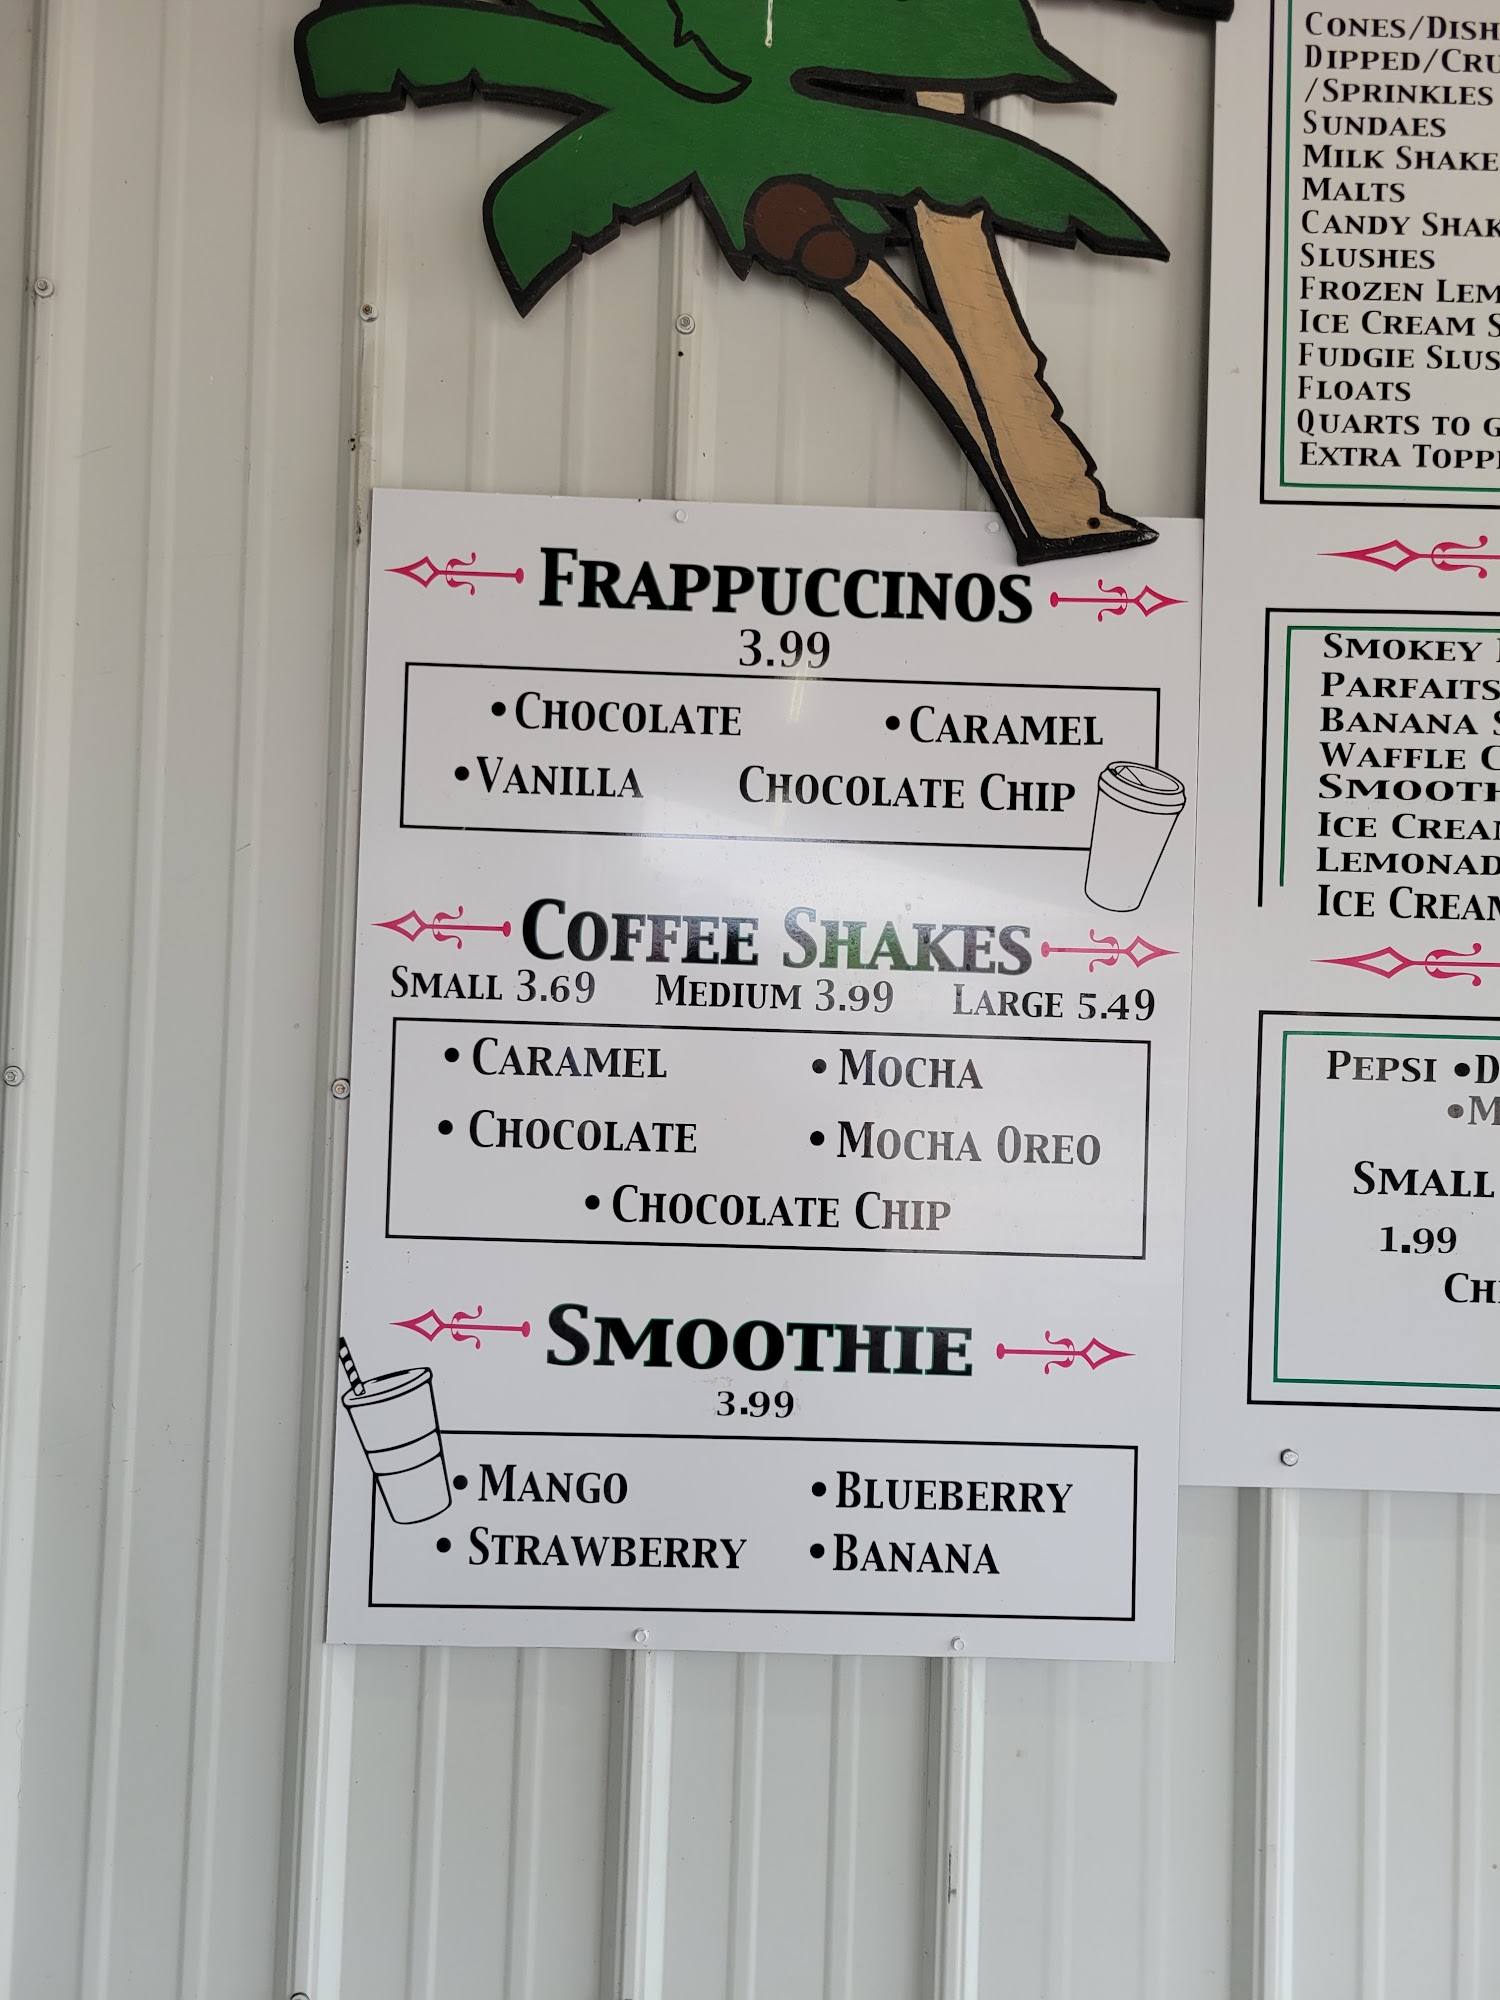 Frappuccinos
3.99
•Chocolate •Caramel
•Vanilla Chocolate Chip
Coffee Shakes
Small 3.69 Medium 3.99 Large 5.49
• Caramel • Mocha
• Chocolate • Mocha Oreo
• Chocolate Chip
Smoothie
3.99
• Mango •Blueberry
• Strawberry •Banana
Cones/
Dipped/
/Sprinkles
Sundaes
Milk
Malts
Candy
Slushes
Frozen
Ice Cream
Fudgie
Floats
Quarts to
Extra
Smokey
Parfaits
Banana
Waffle
Ice
Ice
Pepsi
Small
1.99